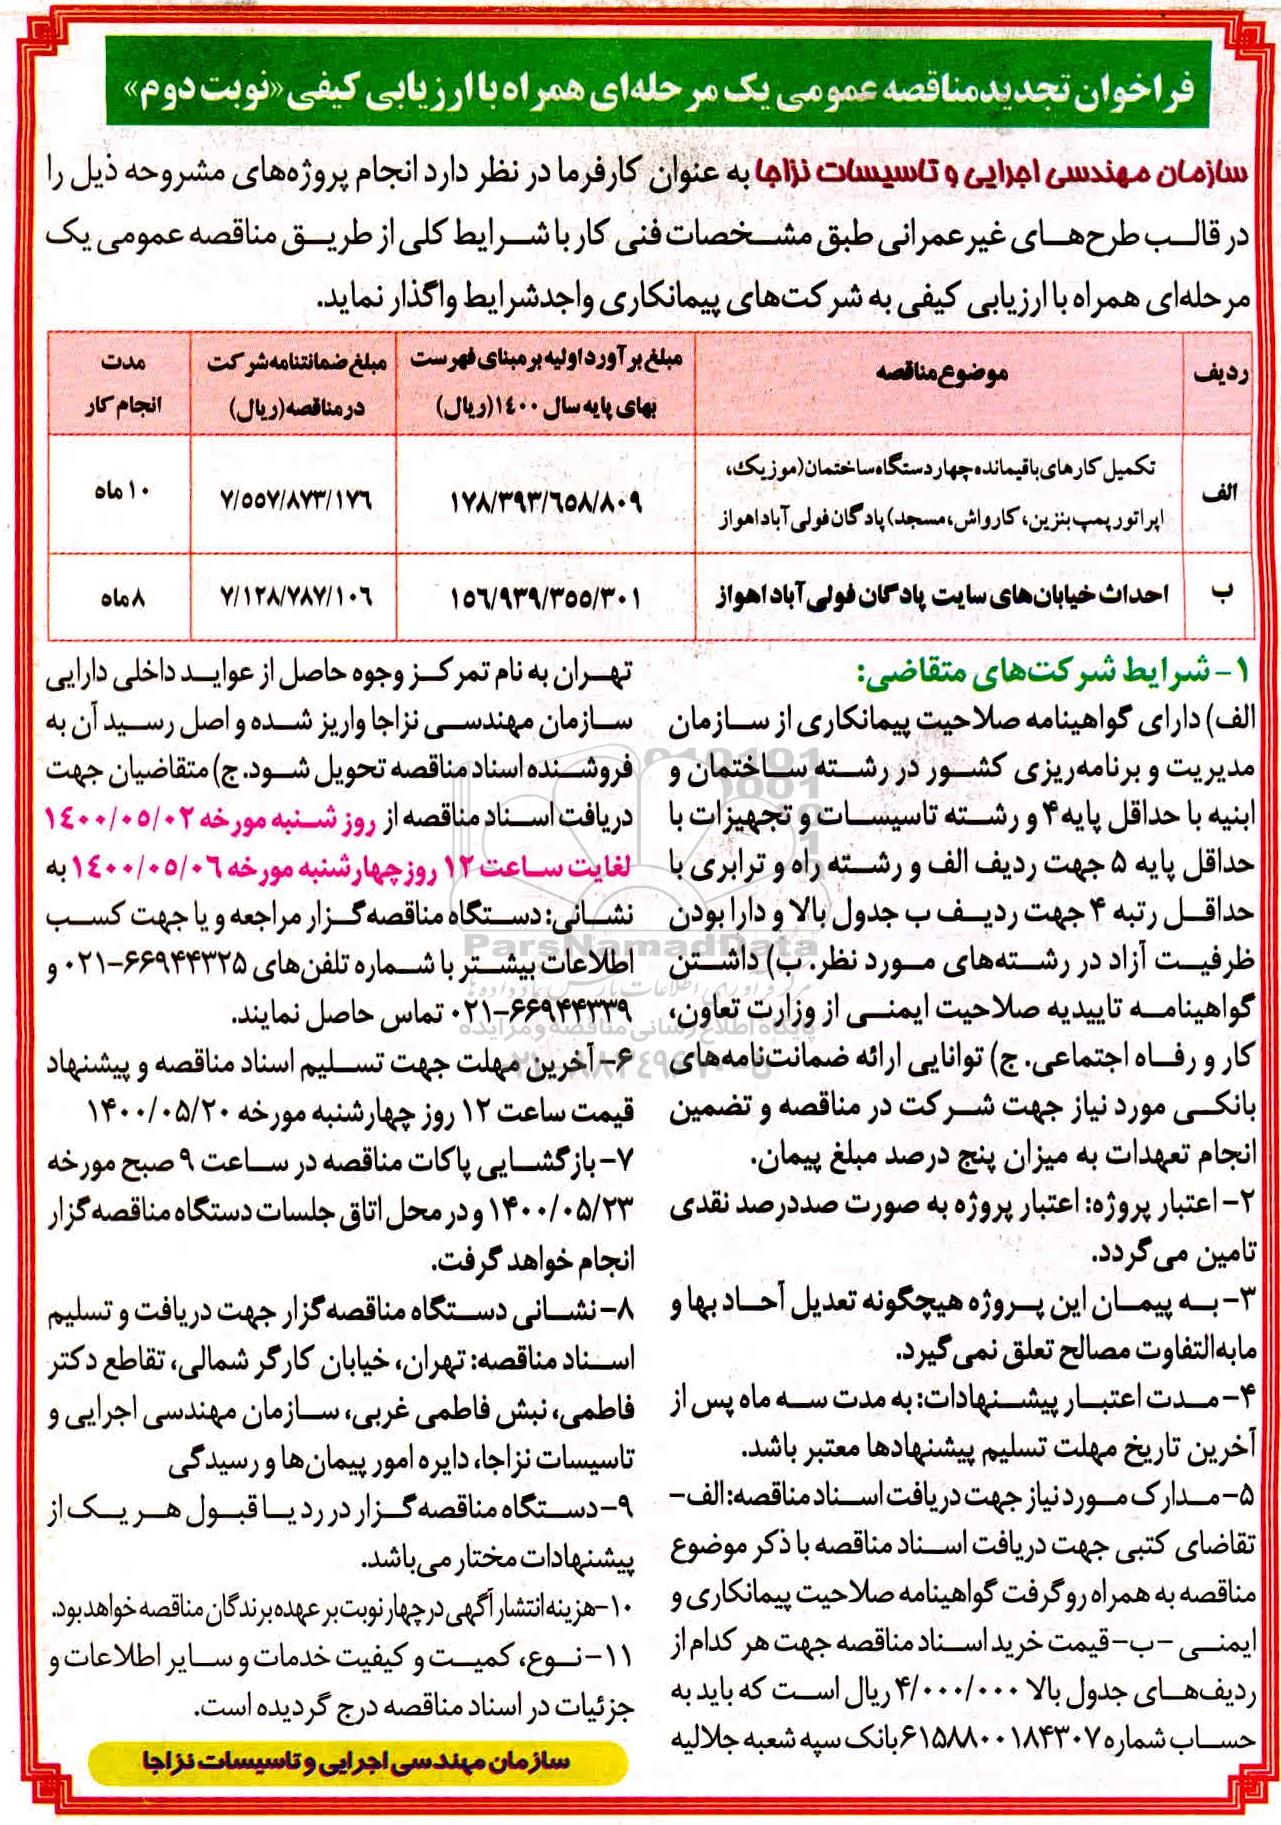 فراخوان تجدید مناقصه عمومی یک مرحله‌ای همراه با ارزیابی کیفی «نوبت دوم»
سازمان مهندسی اجرایی و تاسیسات نزاجا به عنوان کارفرما در نظر دارد انجام پروژه‌های مشروحه ذیل را
در قالب طرح‌های غیرعمرانی طبق مشخصات فنی کار با شرایط کلی از طریق مناقصه عمومی یک
مرحله‌ای همراه با ارزیابی کیفی به شرکت‌های پیمانکاری واجد شرایط واگذار نماید.
ردیف | موضوع مناقصه | مبلغ برآورد اولیه بر مبنای فهرست بهای پایه سال ۱۴۰۰ (ریال) | مبلغ ضمانتنامه شرکت در مناقصه (ریال) | مدت انجام کار
الف | تکمیل کارهای باقیمانده چهار دستگاه ساختمان (موزیک، اپراتور پمپ بنزین، کارواش، مسجد) پادگان فولی آباد اهواز | ۱۷۸/۳۹۳/۶۵۸/۸۰۹ | ۷/۵۵۷/۸۷۳/۱۷۶ | ۱۰ ماه
ب | احداث خیابان‌های سایت پادگان فولی آباد اهواز | ۱۵۶/۹۳۹/۳۵۵/۳۰۱ | ۷/۱۲۸/۷۸۷/۱۰۶ | ۸ ماه
۱- شرایط شرکت‌های متقاضی:
الف) دارای گواهینامه صلاحیت پیمانکاری از سازمان
مدیریت و برنامه‌ریزی کشور در رشته ساختمان و
ابنیه با حداقل پایه ۴ و رشته تاسیسات و تجهیزات با
حداقل پایه ۵ جهت ردیف الف و رشته راه و ترابری با
حداقل رتبه ۴ جهت ردیف ب جدول بالا و دارا بودن
ظرفیت آزاد در رشته‌های مورد نظر. ب) داشتن
گواهینامه تاییدیه صلاحیت ایمنی از وزارت تعاون،
کار و رفاه اجتماعی. ج) توانایی ارائه ضمانت‌نامه‌های
بانکی مورد نیاز جهت شرکت در مناقصه و تضمین
انجام تعهدات به میزان پنج درصد مبلغ پیمان.
۲- اعتبار پروژه: اعتبار پروژه به صورت صددرصد نقدی
تامین می‌گردد.
۳- به پیمان این پروژه هیچگونه تعدیل آحاد بها و
مابه‌التفاوت مصالح تعلق نمی‌گیرد.
۴- مدت اعتبار پیشنهادات: به مدت سه ماه پس از
آخرین تاریخ مهلت تسلیم پیشنهادها معتبر باشد.
۵- مدارک مورد نیاز جهت دریافت اسناد مناقصه: الف-
تقاضای کتبی جهت دریافت اسناد مناقصه با ذکر موضوع
مناقصه به همراه روگرفت گواهینامه صلاحیت پیمانکاری و
ایمنی -ب- قیمت خرید اسناد مناقصه جهت هر کدام از
ردیف‌های جدول بالا ۴/۰۰۰/۰۰۰ ریال است که باید به
حساب شماره ۶۱۵۸۸۰۰۱۸۴۳۰۷ بانک سپه شعبه جلالیه
تهران به نام تمرکز وجوه حاصل از عواید داخلی دارایی
سازمان مهندسی نزاجا واریز شده و اصل رسید آن به
فروشنده اسناد مناقصه تحویل شود. ج) متقاضیان جهت
دریافت اسناد مناقصه از روز شنبه مورخه ۱۴۰۰/۰۵/۰۲
لغایت ساعت ۱۲ روز چهارشنبه مورخه ۱۴۰۰/۰۵/۰۶ به
نشانی: دستگاه مناقصه‌گزار مراجعه و یا جهت کسب
اطلاعات بیشتر با شماره تلفن‌های ۶۶۹۴۴۳۲۵-۰۲۱ و
۶۶۹۴۴۳۳۹-۰۲۱ تماس حاصل نمایند.
۶- آخرین مهلت جهت تسلیم اسناد مناقصه و پیشنهاد
قیمت ساعت ۱۲ روز چهارشنبه مورخه ۱۴۰۰/۰۵/۲۰
۷- بازگشایی پاکات مناقصه در ساعت ۹ صبح مورخه
۱۴۰۰/۰۵/۲۳ و در محل اتاق جلسات دستگاه مناقصه‌گزار
انجام خواهد گرفت.
۸- نشانی دستگاه مناقصه‌گزار جهت دریافت و تسلیم
اسناد مناقصه: تهران، خیابان کارگر شمالی، تقاطع دکتر
فاطمی، نبش فاطمی غربی، سازمان مهندسی اجرایی و
تاسیسات نزاجا، دایره امور پیمان‌ها و رسیدگی
۹- دستگاه مناقصه‌گزار در رد یا قبول هر یک از
پیشنهادات مختار می‌باشد.
۱۰- هزینه انتشار آگهی در چهار نوبت بر عهده برندگان مناقصه خواهد بود.
۱۱- نوع، کمیت و کیفیت خدمات و سایر اطلاعات و
جزئیات در اسناد مناقصه درج گردیده است.
سازمان مهندسی اجرایی و تاسیسات نزاجا
ParsNamadData
پایگاه اطلاع رسانی مناقصه و مزایده